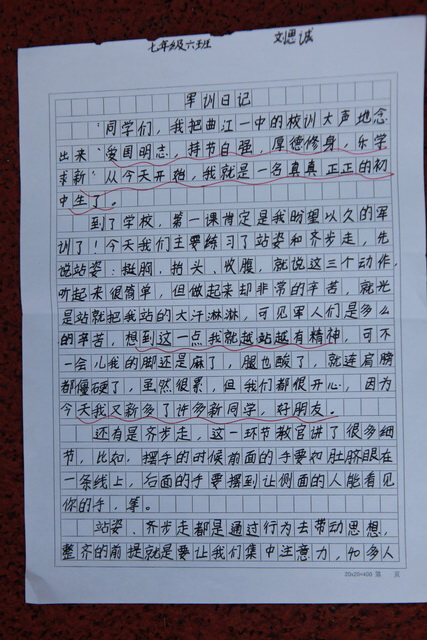 七年级六班 刘思诚
军训日记
"同学们，我把曲江一中的校训大声地念
出来"爱国明志，持节自强，厚德修身，乐学
求新"从今天开始，我就是一名真真正正的初
中生了。
到了学校，第一课肯定是我盼望以久的军
训了！今天我们主要练习了站姿和齐步走，先
说站姿：挺胸、抬头、收腹，就说这三个动作，
听起来很简单，但做起来却非常的辛苦，就光
是站就把我站的大汗淋淋，可见军人们是多么
的辛苦，想到这一点我就越站越有精神，可不
一会儿我的脚还是麻了，腿也酸了，就连肩膀
都僵硬了，虽然很累，但我们都很开心，因为
今天我又新多了许多新同学，好朋友。
还有是齐步走，这一环节教官讲了很多细
节，比如，摆手的时候前面的手要如肚脐眼在
一条线上，后面的手要摆到让侧面的人能看见
你的手，等。
站姿、齐步走都是通过行为去带动思想，
整齐的前提就是要让我们集中注意力，40多人
20×20=400 第 页